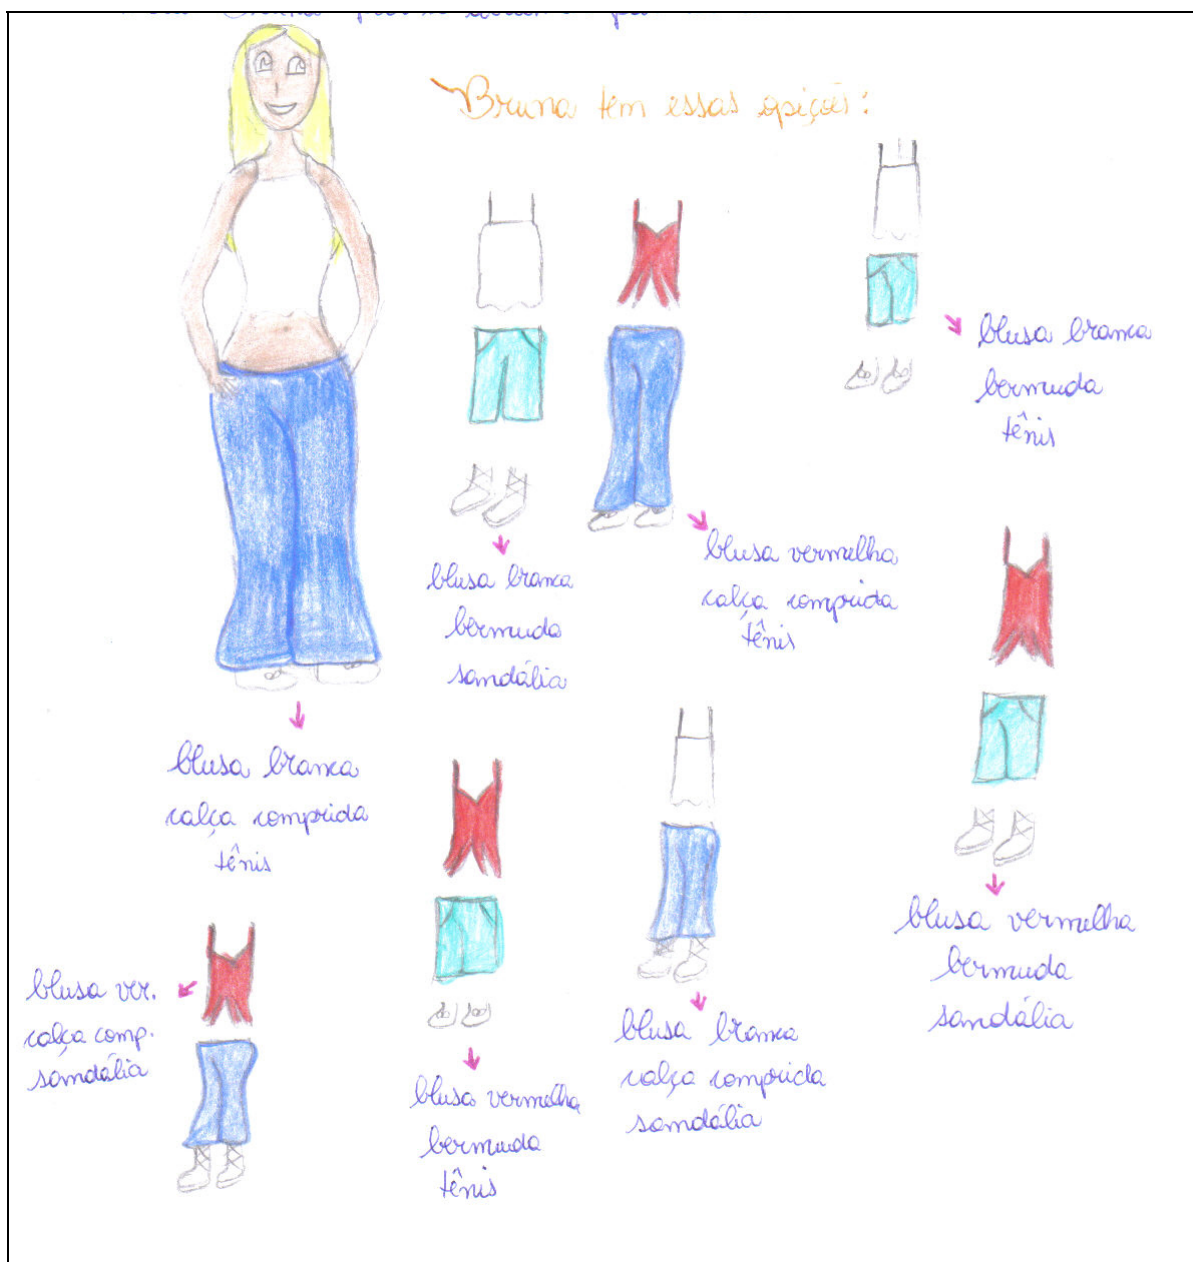 Bruna tem essas opições:
blusa branca
bermuda
tênis
blusa branca
bermuda
sandália
blusa vermelha
calça comprida
tênis
blusa branca
calça comprida
tênis
blusa vermelha
bermuda
sandália
blusa ver.
calça comp.
sandália
blusa vermelha
bermuda
tênis
blusa branca
calça comprida
sandália